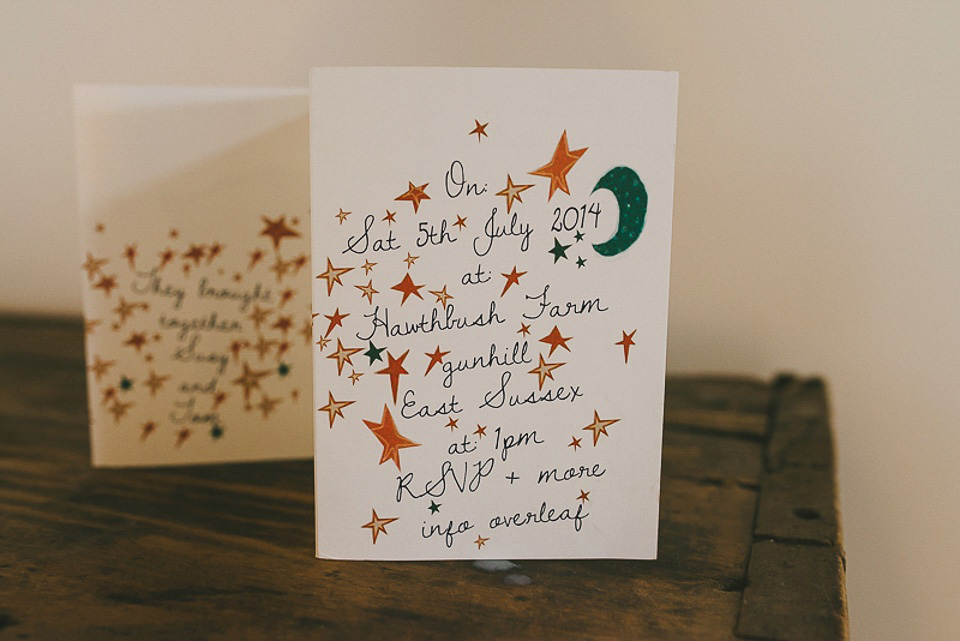 They brought
together
Susy
and
Tom
On:
Sat 5th July 2014
at:
Hawthbush Farm
gunhill
East Sussex
at: 1pm
RSVP + more
info overleaf